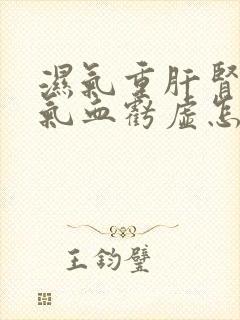 濕氣重肝腎
氣血虧虛怎
王鈞璧